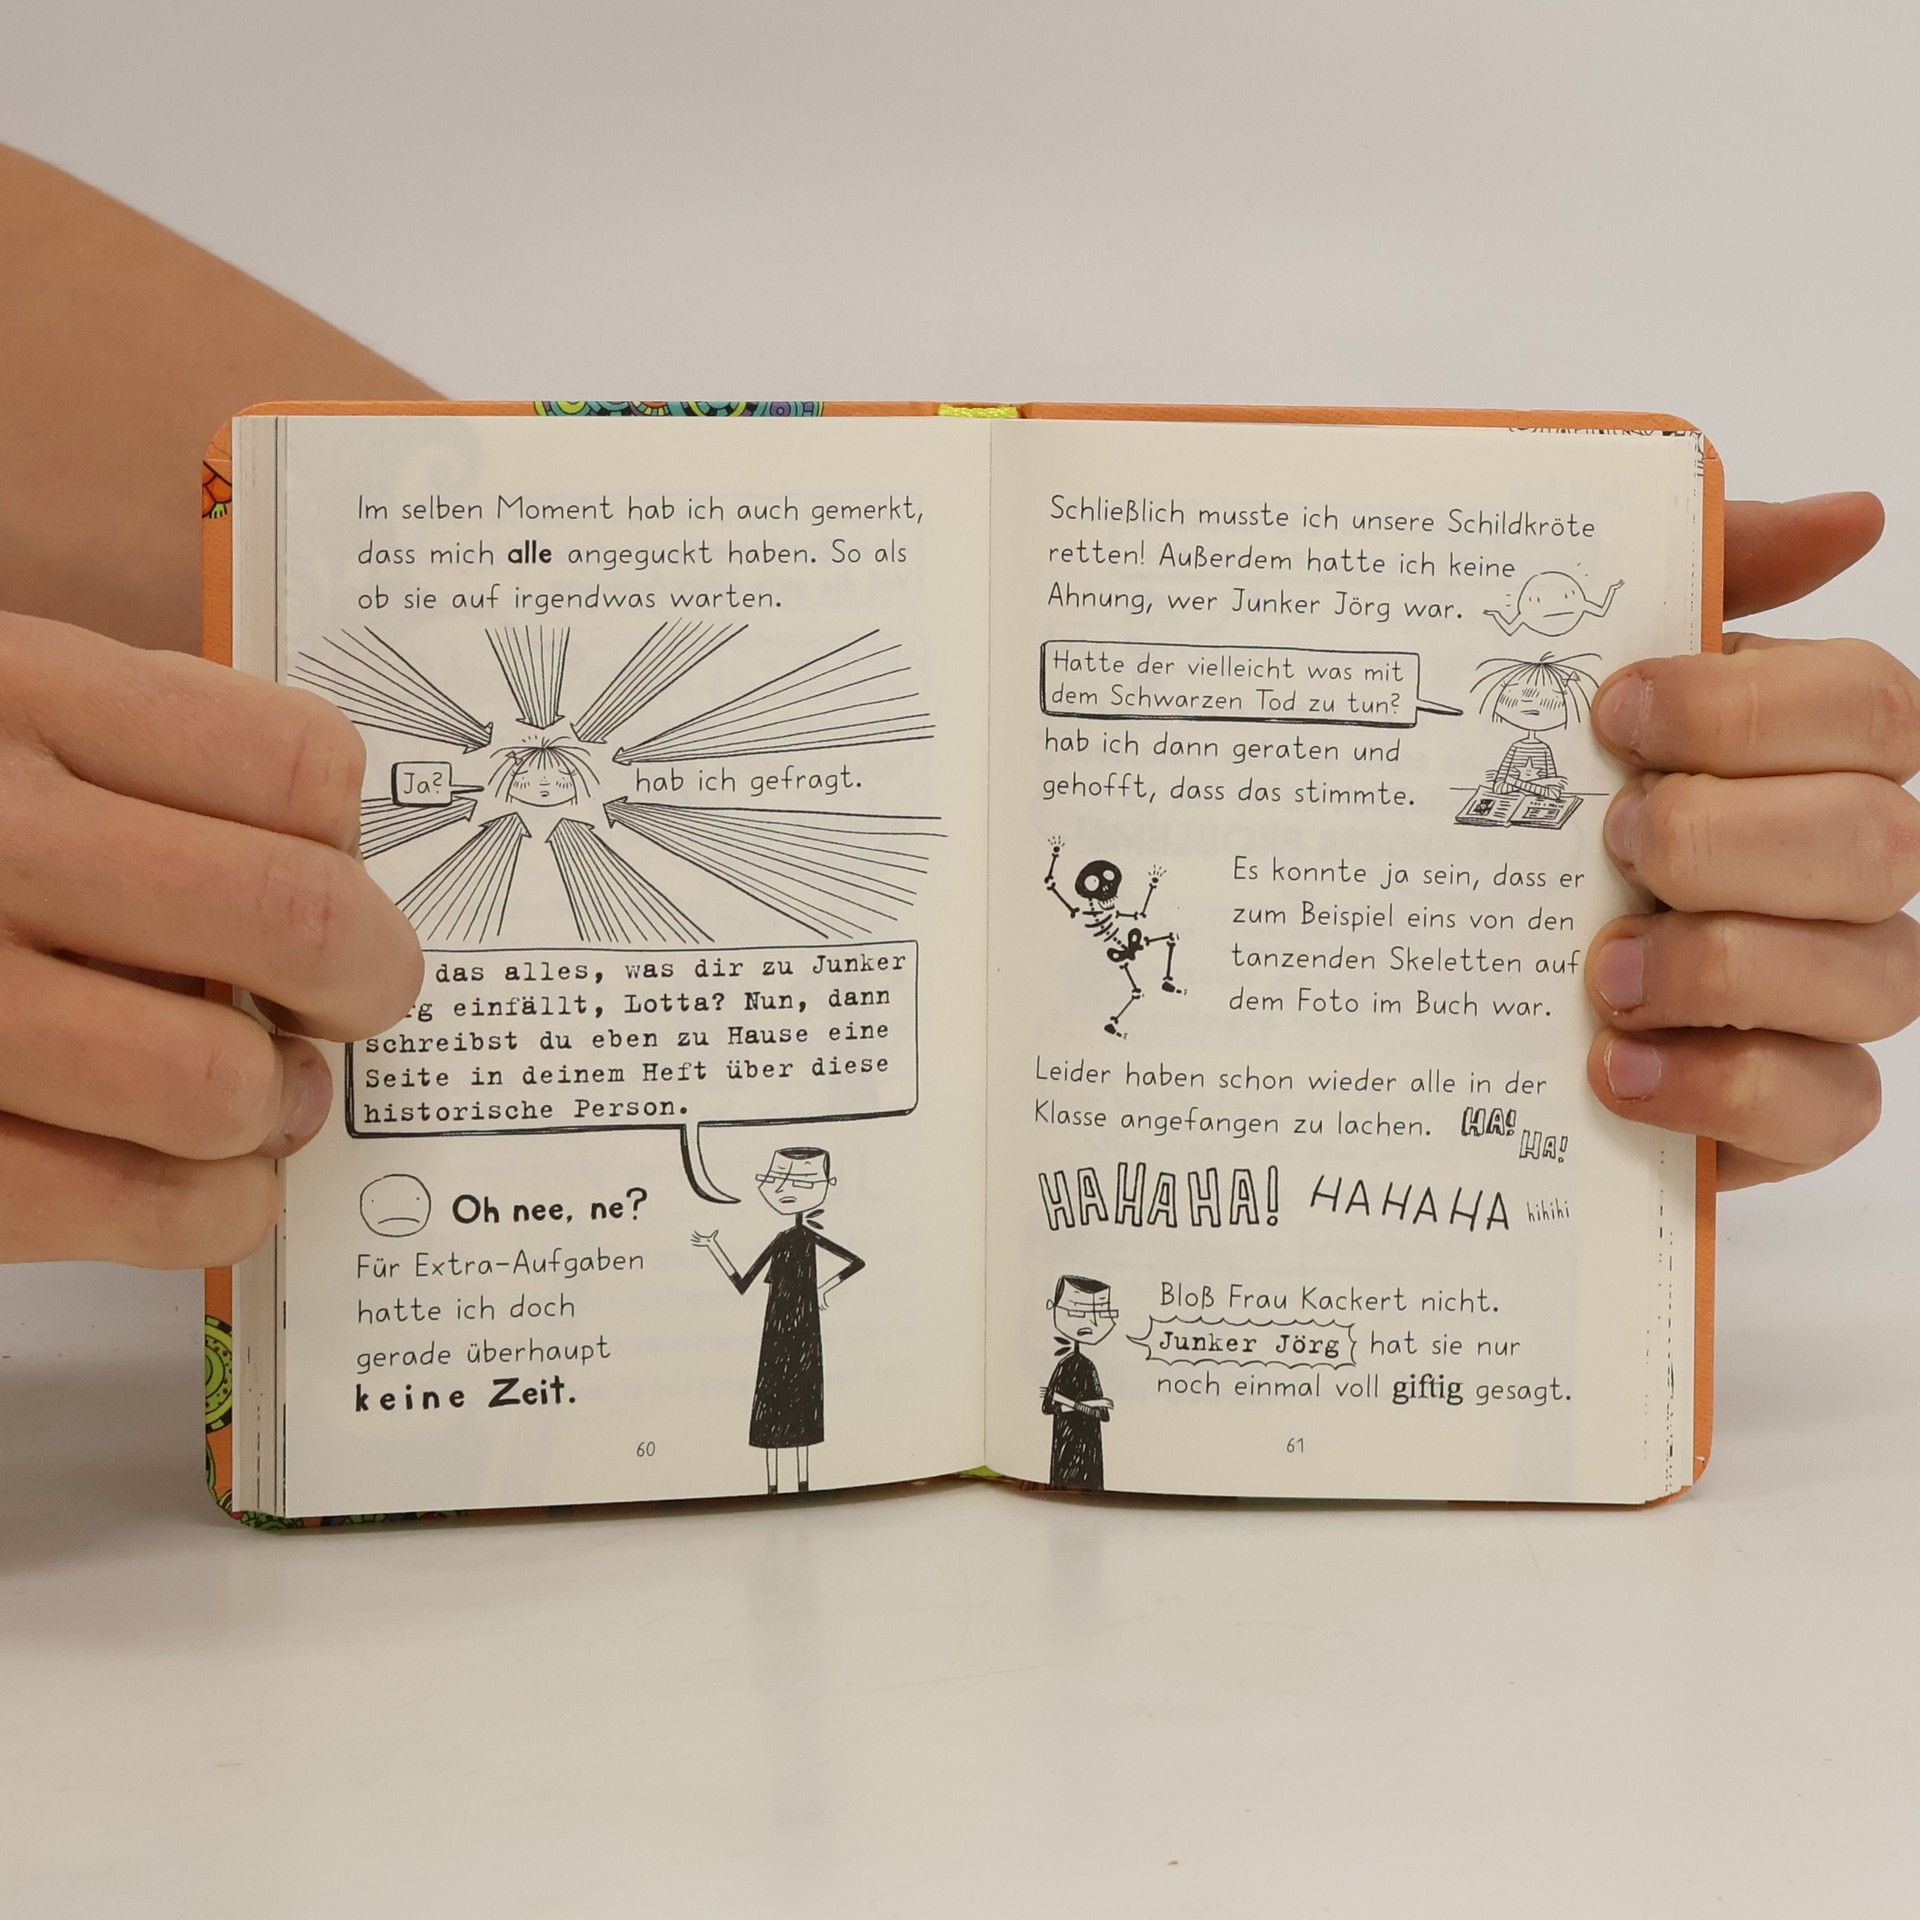 Im selben Moment hab ich auch gemerkt,
dass mich alle angeguckt haben. So als
ob sie auf irgendwas warten.
Ja?
hab ich gefragt.
das alles, was dir zu Junker
einfällt, Lotta? Nun, dann
schreibst du eben zu Hause eine
Seite in deinem Heft über diese
historische Person.
Oh nee, ne?
Für Extra-Aufgaben
hatte ich doch
gerade überhaupt
keine Zeit.
60
Schließlich musste ich unsere Schildkröte
retten! Außerdem hatte ich keine
Ahnung, wer Junker Jörg war.
Hatte der vielleicht was mit
dem Schwarzen Tod zu tun?
hab ich dann geraten und
gehofft, dass das stimmte.
Es konnte ja sein, dass er
zum Beispiel eins von den
tanzenden Skeletten auf
dem Foto im Buch war.
Leider haben schon wieder alle in der
Klasse angefangen zu lachen. HA!
HA!
HAHAHA! HAHAHA hihihi
Bloß Frau Kackert nicht.
Junker Jörg hat sie nur
noch einmal voll giftig gesagt.
61